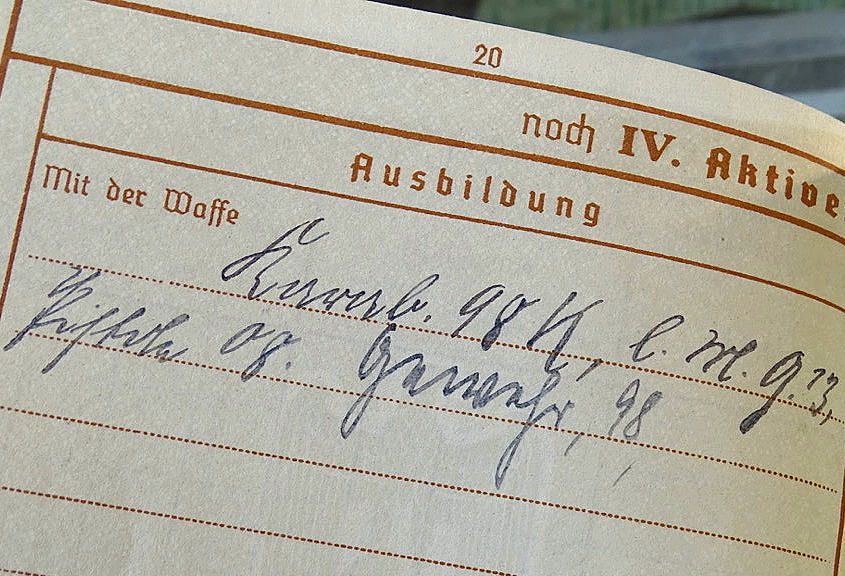 20
noch IV. Aktive
Ausbildung
Mit der Waffe
Karab. 98 K, l. M. G. 13,
Pistole 08. Gewehr, 98,